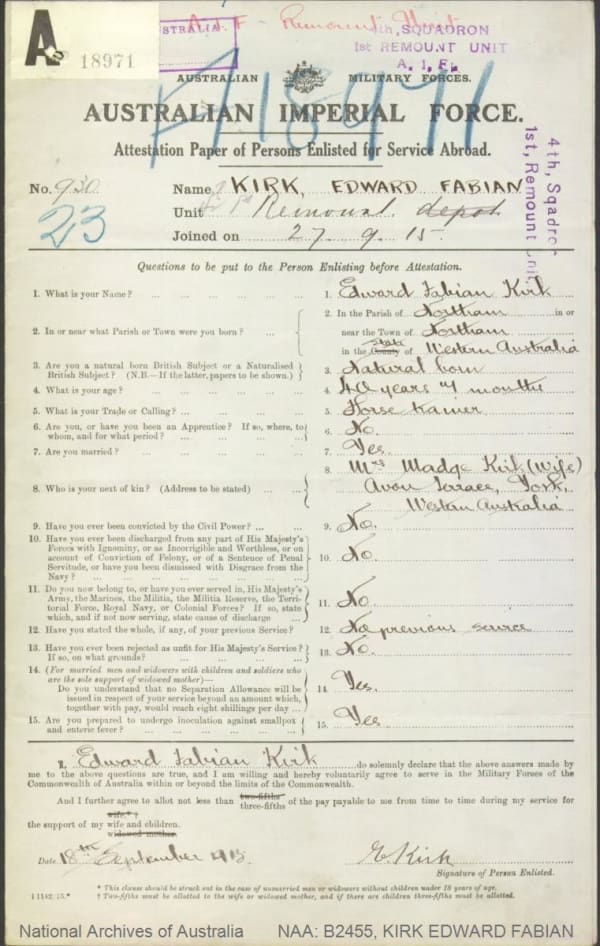 A
18971
A.I.F. Remount Unit
STRALIA.
4th, SQUADRON
1st REMOUNT UNIT
A. I. F.
AUSTRALIAN MILITARY FORCES.
18971
AUSTRALIAN IMPERIAL FORCE.
Attestation Paper of Persons Enlisted for Service Abroad.
4th, Sqadron
1st, Remount Unit
No. 930 Name KIRK, EDWARD FABIAN
23 Unit Remount depot
Joined on 27 . 9 . 15.
Questions to be put to the Person Enlisting before Attestation.
1. What is your Name? ... ... ... ... 1. Edward Fabian Kirk
2. In or near what Parish or Town were you born? ... 2. In the Parish of Northam in or
near the Town of Northam
in the County State of Western Australia
3. Are you a natural born British Subject or a Naturalised
British Subject? (N.B.—If the latter, papers to be shown.) 3. Natural born
4. What is your age? ... ... ... ... 4. 40 years 7 months
5. What is your Trade or Calling? ... ... ... ... 5. Horse trainer
6. Are you, or have you been an Apprentice? If so, where, to
whom, and for what period? ... ... ... ... 6. No.
7. Are you married? ... ... ... ... 7. Yes
8. Who is your next of kin? (Address to be stated) ... ... 8. Mrs Madge Kirk (Wife)
Avon Terrace, York,
Western Australia
9. Have you ever been convicted by the Civil Power? ... ... 9. No.
10. Have you ever been discharged from any part of His Majesty's
Forces with Ignominy, or as Incorrigible and Worthless, or on
account of Conviction of Felony, or of a Sentence of Penal
Servitude, or have you been dismissed with Disgrace from the
Navy? ... ... ... ... 10. No.
11. Do you now belong to, or have you ever served in, His Majesty's
Army, the Marines, the Militia, the Militia Reserve, the Terri-
torial Force, Royal Navy, or Colonial Forces? If so, state
which, and if not now serving, state cause of discharge ... 11. No
12. Have you stated the whole, if any, of your previous Service? 12. No previous service
13. Have you ever been rejected as unfit for His Majesty's Service?
If so, on what grounds? ... ... ... 13. No.
14. (For married men and widowers with children and soldiers who
are the sole support of widowed mother)—
Do you understand that no Separation Allowance will be
issued in respect of your service beyond an amount which,
together with pay, would reach eight shillings per day ... 14. Yes.
15. Are you prepared to undergo inoculation against smallpox
and enteric fever? ... ... ... 15. Yes
I, Edward Fabian Kirk do solemnly declare that the above answers made by
me to the above questions are true, and I am willing and hereby voluntarily agree to serve in the Military Forces of the
Commonwealth of Australia within or beyond the limits of the Commonwealth.
And I further agree to allot not less than two-fifths three-fifths of the pay payable to me from time to time during my service for
wife.* †
the support of my wife and children.
widowed mother.
Date 18th September 1915. E Kirk
Signature of Person Enlisted.
* This clause should be struck out in the case of unmarried men or widowers without children under 18 years of age.
† Two-fifths must be allotted to the wife or widowed mother, and if there are children three-fifths must be allotted.
National Archives of Australia NAA: B2455, KIRK EDWARD FABIAN